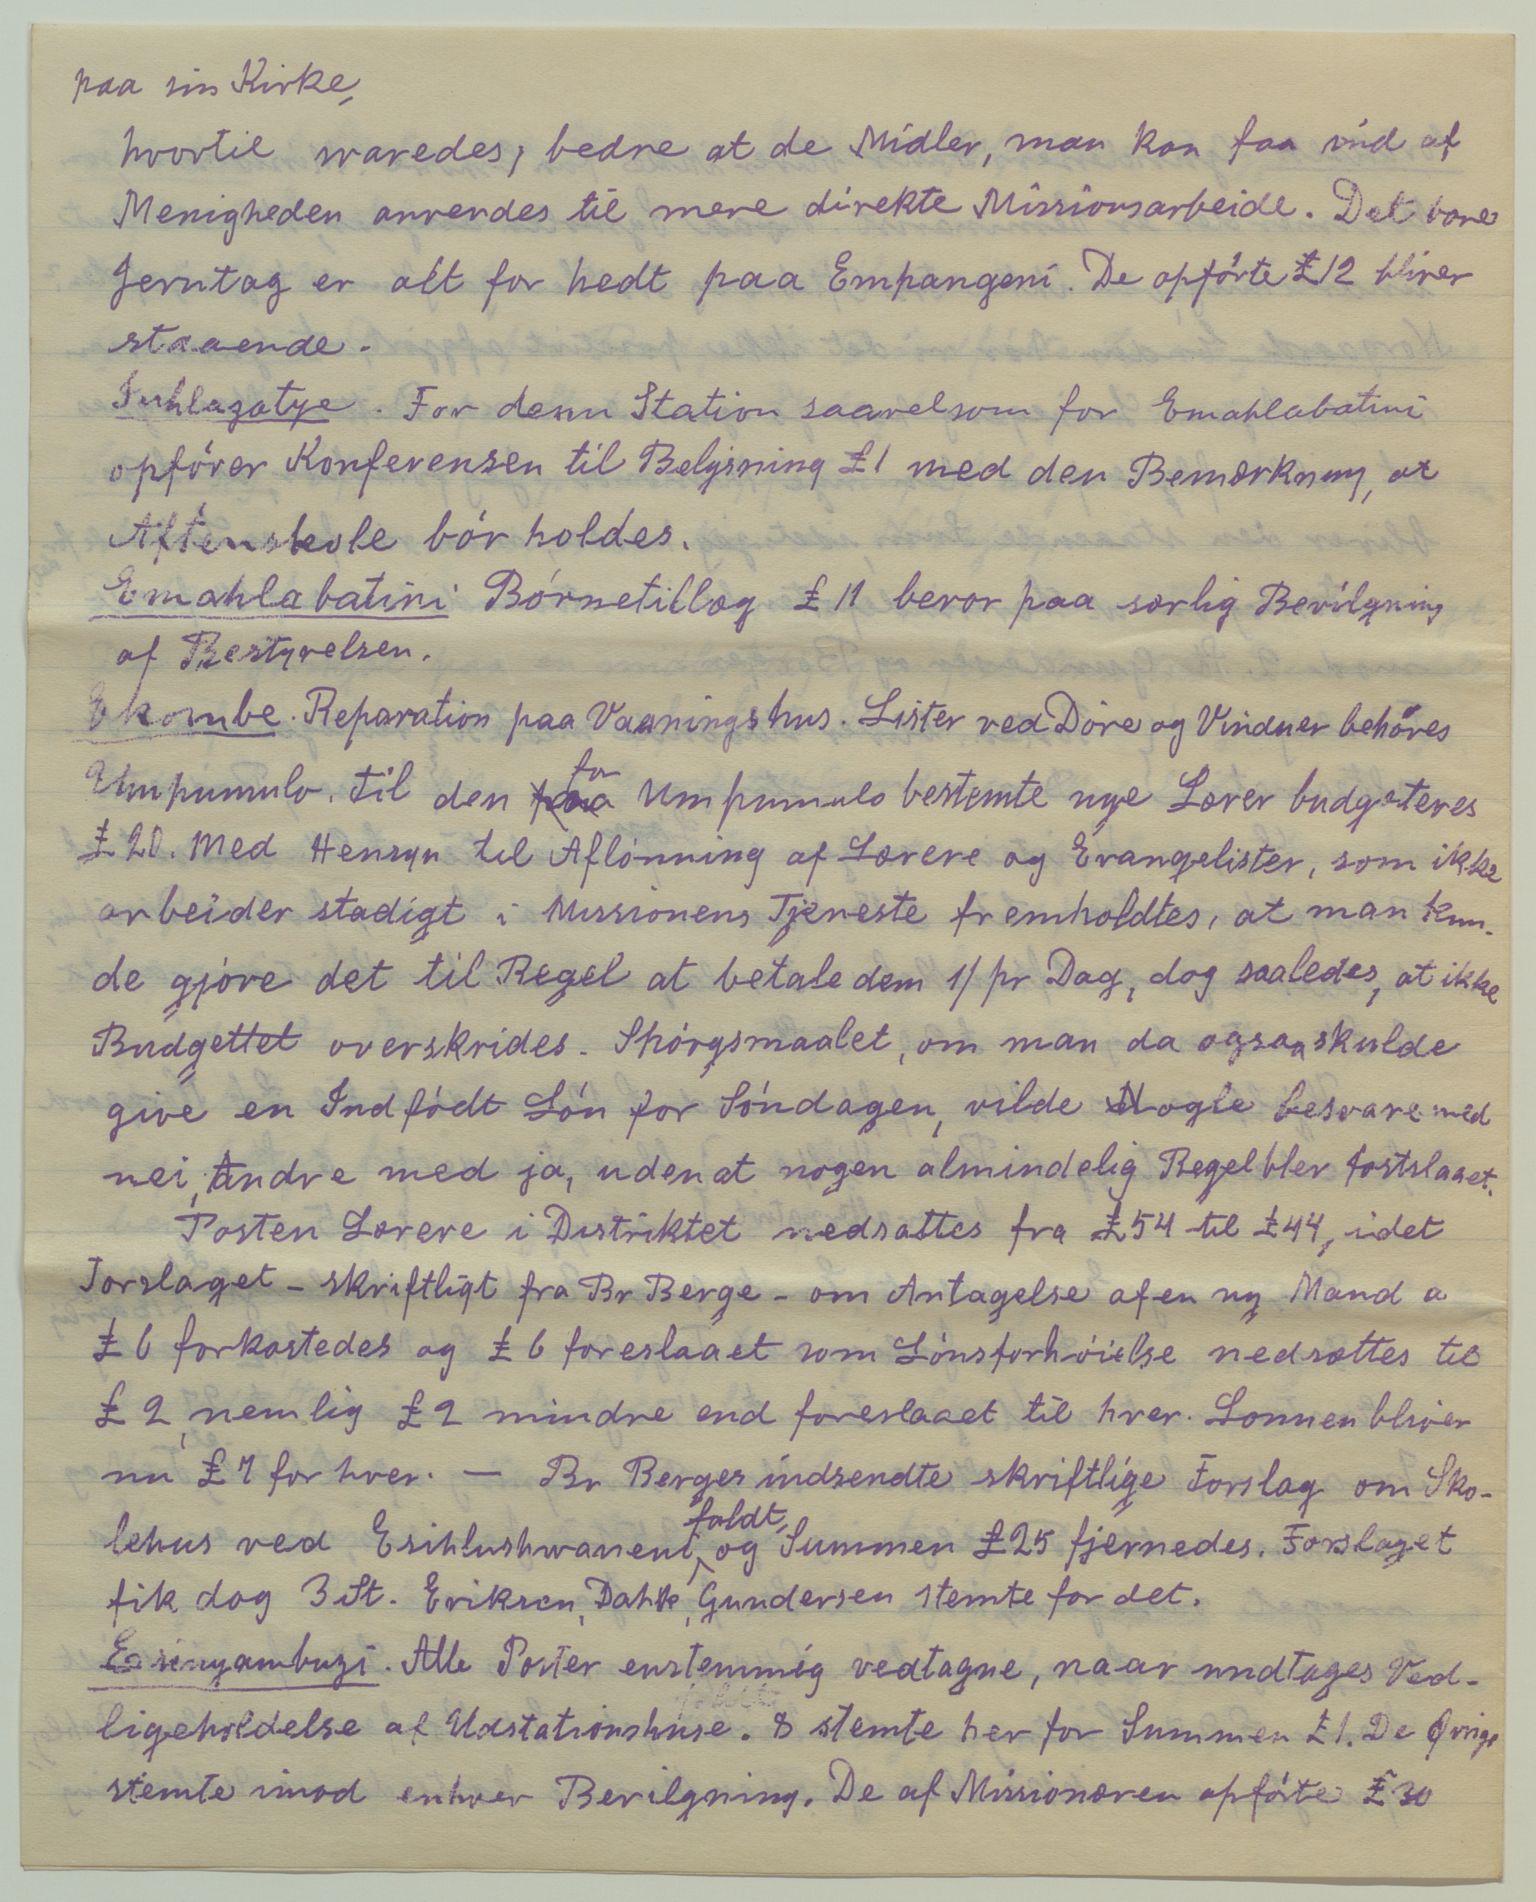 paa sin Kirke,
hvortil svaredes, bedre at de Midler, man kan faa ind af
Menigheden anvendes til mere direkte Missionsarbeide. Det bare
Jerntag er alt for hedt paa Empangeni. De opførte £12 bliver
staaende.
Inhlazatye. For denn Station saavelsom for Emahlabatini
opfører Konferensen til Belysning £1 med den Bemærkning, at
Aftenskole bør holdes.
Emahlabatini Børnetillæg £11 beror paa særlig Bevilgning
af Bestyrelsen.
Ekombe. Reparation paa Vaaningshus. Lister ved Døre og Vinduer behøves
Umpumulo. Til den for Umpumulo bestemte nye Lærer budgeteres
£20. Med Hensyn til Aflønning af Lærere og Evangelister, som ikke
arbeider stadigt i Missionens Tjeneste fremholdtes, at man kun-
de gjøre det til Regel at betale dem 1/ pr Dag, dog saaledes, at ikke
Budgettet overskrides. Spørgsmaalet, om man da ogsaa skulde
give en Indfødt Løn for Søndagen, vilde Nogle besvare med
nei, Andre med ja, uden at nogen almindelig Regel blev fastslaaet.
Posten Lærere i Distriktet nedsattes fra £54 til £44, idet
Forslaget - skriftligt fra Br Berge - om Antagelse af en ny Mand a
£6 forkastedes og £6 foreslaaet som Lønsforhøielse nedsættes til
£2, nemlig £2 mindre end foreslaaet til hver. Lønnen bliver
nu £7 for hver. — Br Berges indsendte skriftlige Forslag om Sko-
lehus ved Esihlushwaneni faldt, og Summen £25 fjernedes. Forslaget
fik dog 3 St. Eriksen, Dahle, Gundersen stemte for det.
Esinyambuzi. Alle Poster enstemmig vedtagne, naar undtages Ved-
ligeholdelse af Udstationshuse. 8 stemte her for Summen £1. De Øvrige
stemte imod enhver Bevilgning. De af Missionæren opførte £30